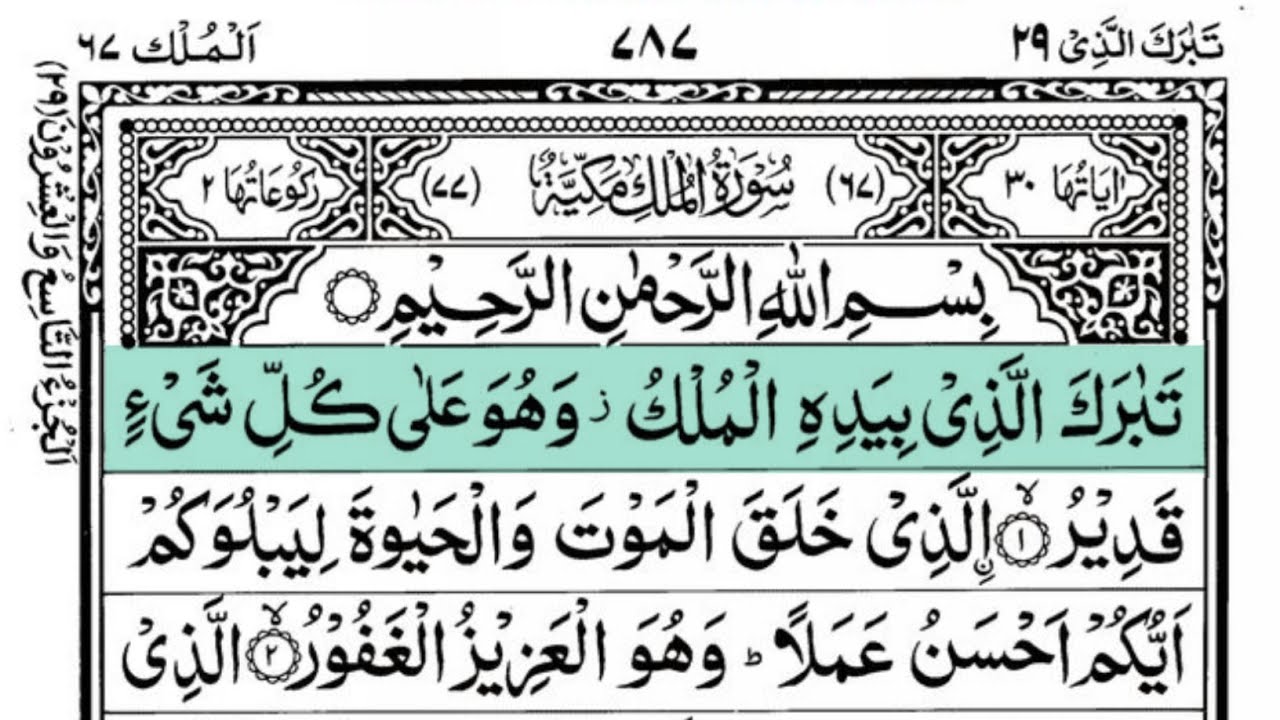 تَبٰرَكَ الَّذِیْ ٢٩
٧٨٧
اَلْمُلْك ٦٧
اٰيَاتُهَا ٣٠
(٦٧) سُوْرَةُ الْمُلْكِ مَكِّيَّةٌ (٧٧)
رُكُوْعَاتُهَا ٢
بِسْمِ اللهِ الرَّحْمٰنِ الرَّحِيْمِ
تَبٰرَكَ الَّذِیْ بِيَدِهِ الْمُلْكُ ز وَهُوَ عَلٰى كُلِّ شَیْءٍ
قَدِيْرُ ۙ﴿١﴾ اِۨلَّذِیْ خَلَقَ الْمَوْتَ وَالْحَيٰوةَ لِيَبْلُوَكُمْ
اَيُّكُمْ اَحْسَنُ عَمَلًا ؕ وَهُوَ الْعَزِيْزُ الْغَفُوْرُ ۙ﴿٢﴾ الَّذِیْ
اَلْجُزْءُ التَّاسِعُ وَالْعِشْرُوْنَ (٢٩)